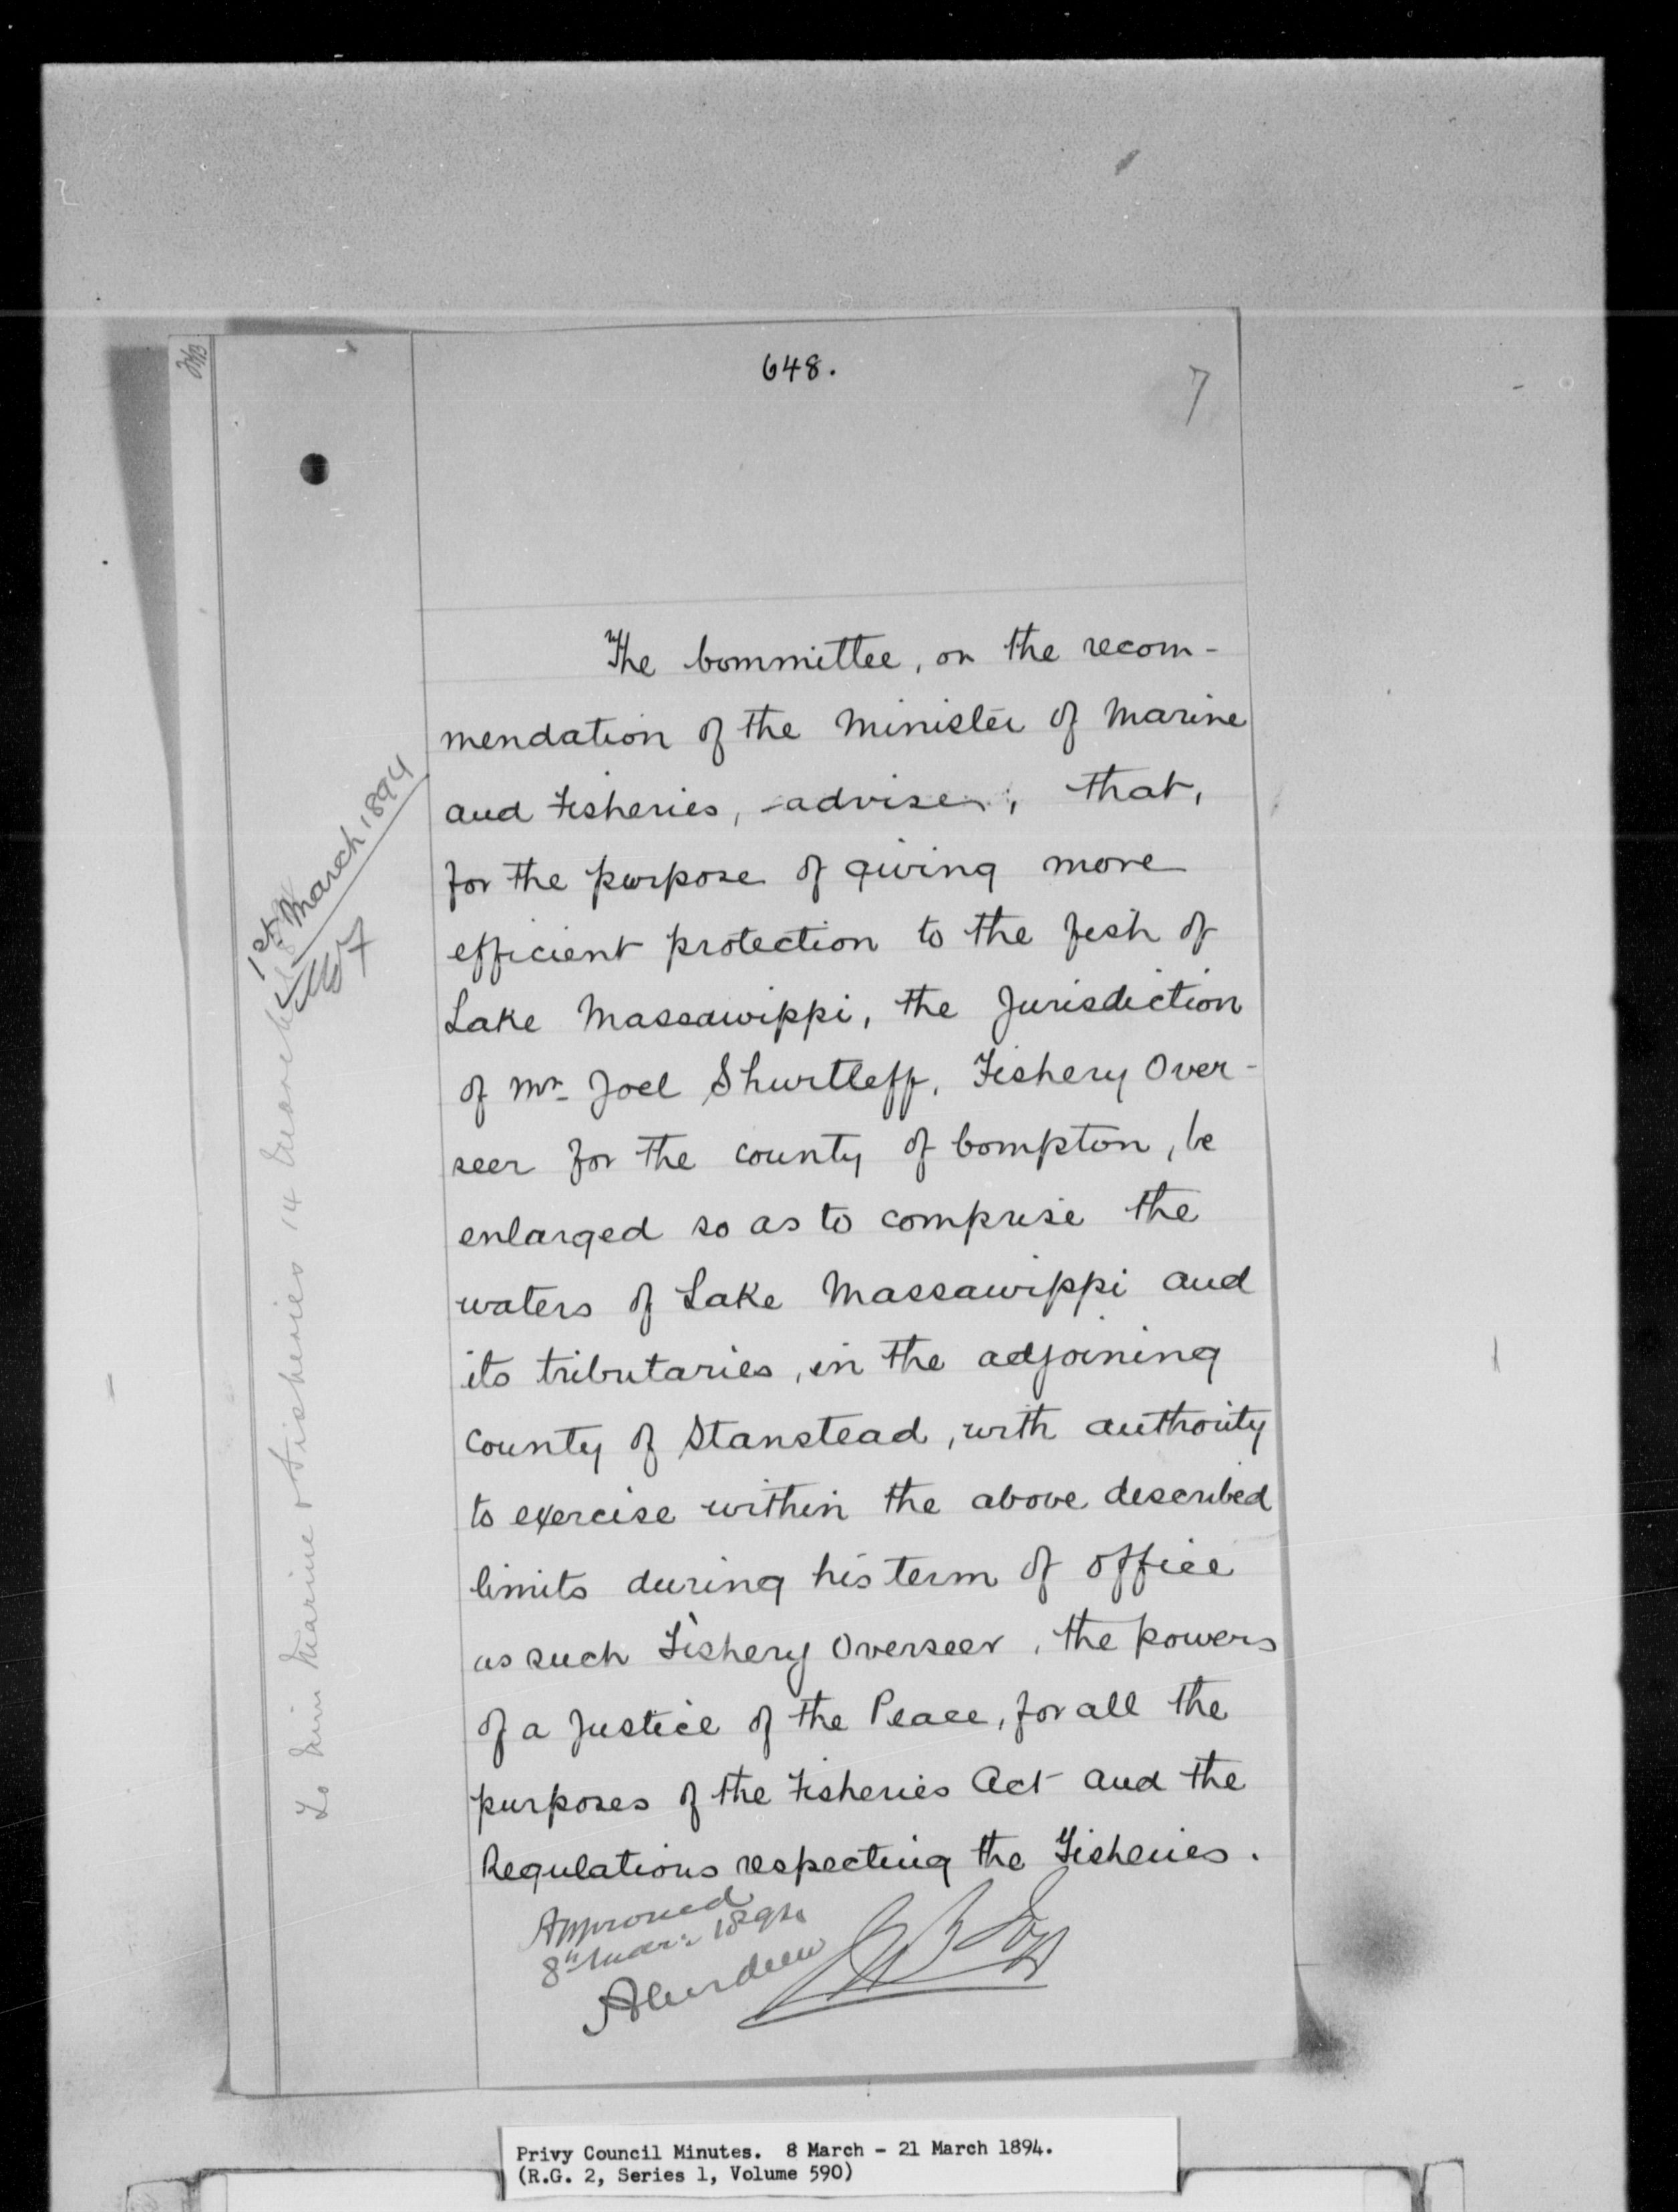 648.
7
The Committee, on the recom-
mendation of the Minister of Marine
and Fisheries, advise, that,
for the purpose of giving more
efficient protection to the fish of
Lake Massawippi, the Jurisdiction
of Mr Joel Shurtleff, Fishery Over-
seer for the county of Compton, be
enlarged so as to comprise the
waters of Lake Massawippi and
its tributaries, in the adjoining
County of Stanstead, with authority
to exercise within the above described
limits during his term of office
as such Fishery Overseer, the powers
of a Justice of the Peace, for all the
purposes of the Fisheries Act and the
Regulations respecting the Fisheries.
Approved
8th Mar: 1894
Aberdeen
1st March 1894
M & F
To Min Marine & Fisheries 14 March
Privy Council Minutes. 8 March - 21 March 1894.
(R.G. 2, Series 1, Volume 590)